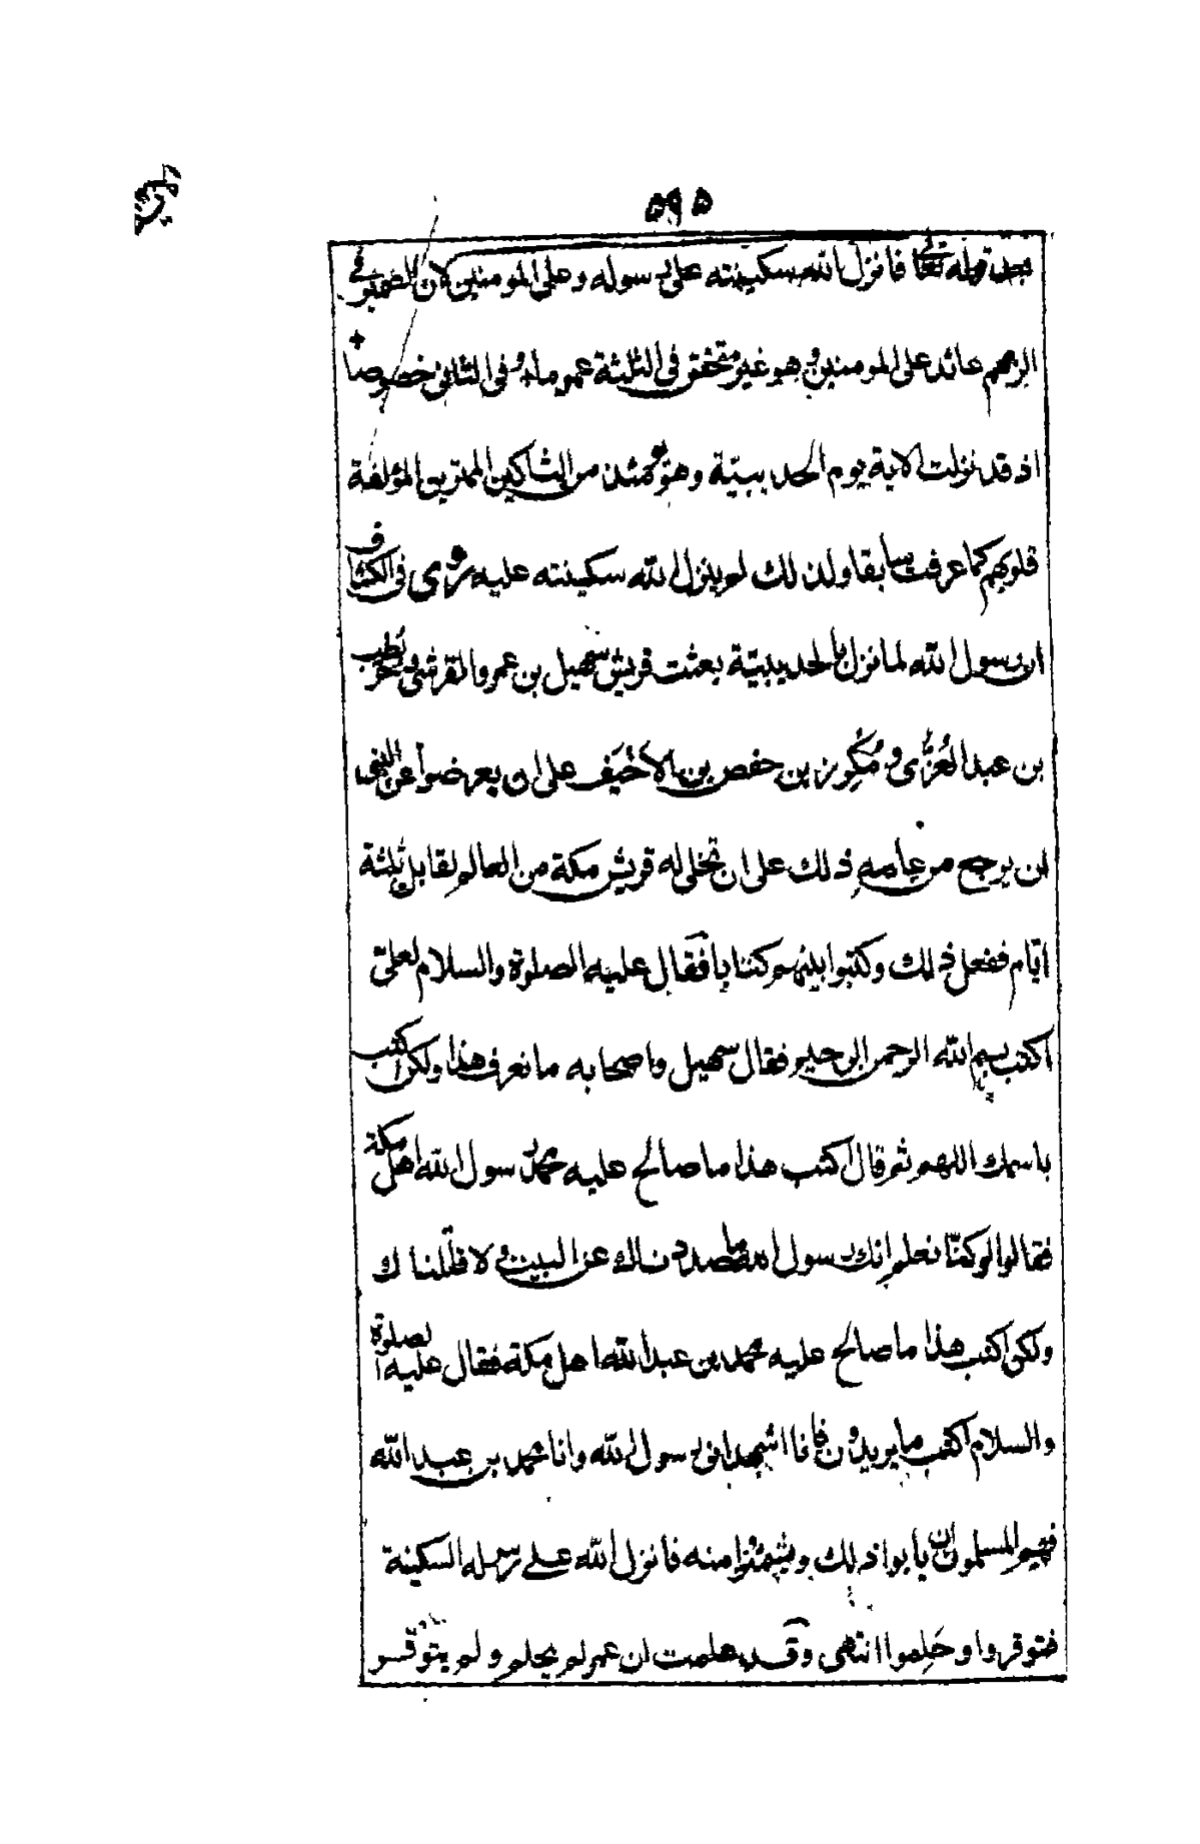 ۵۹۵
بعد قوله تعالى فانزل الله سكينته على رسوله وعلى المومنين لان الضمير في
الزمهم عائد على المومنين وهو غير متحقق في الثلثة عموما و في الثاني خصوصا
اذ قد نزلت الاية يوم الحديبيّة وهو يومئذ من الشاكين الممترين المؤلفة
قلوبهم كما عرفت سابقا ولذلك لم ينزل الله سكينته عليه روى في الكشاف
ان رسول الله لما نزل بالحديبيّة بعثت قريش سهيل بن عمرو القرشي و حويطب
بن عبد العُزّى و مُكرِز بن حفص بن الاخيَف على ان يعرضوا عن النبي
ان يرجع من عامه ذلك على ان تخلى له قريش مكة من العام القابل ثلثة
ايّام ففعل ذلك وكتبوا بينهم كتابا فقال عليه الصلوة والسلام لعليّ
اكتب بسم الله الرحمن الرحيم فقال سهيل واصحابه ما نعرف هذا ولكن اكتب
باسمك اللهم ثم قال اكتب هذا ما صالح عليه محمد رسول الله اهل مكة
فقالوا لو كنّا نعلم انك رسول الله ما صددناك عن البيت و لا قتلناك
ولكن اكتب هذا ما صالح عليه محمد بن عبد الله اهل مكة فقال عليه الصلوة
والسلام اكتب ما يريدون فانا اشهد انى رسول الله وانا محمد بن عبد الله
فهم المسلمون ان يابوا ذلك ويشمئزوا منه فانزل الله على رسوله السكينة
فتوقروا وحَلِموا انتهى وقد علمت ان عمر لم يحلم و لم يتوقر